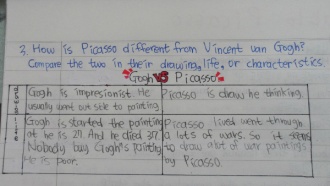 3. How is Picasso different from Vincent van Gogh?
Compare the two in their drawing, life, or characteristics.
Gogh VS Picasso
Gogh is impresionist. He
usually went out side to painting.
Picasso is draw he thinking.
Gogh is started the painting
at he is 27. And he died 37
Nobody buy Gogh's painting
He is poor.
Picasso lived went through
a lots of wars. So it seems
to draw alot of war paintings
by Picasso.